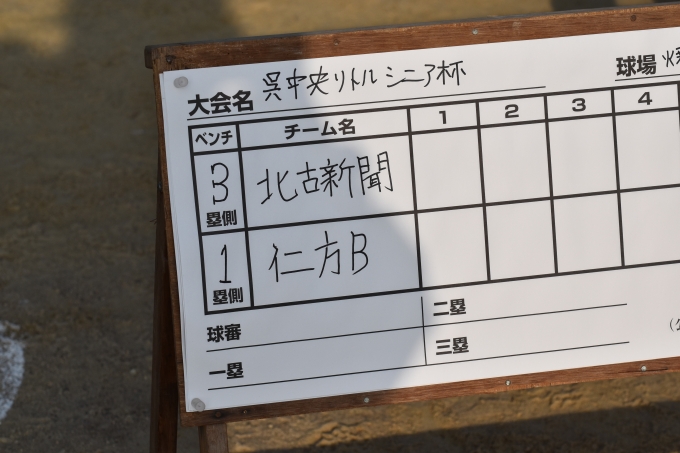 大会名 呉中央リトルシニア杯 球場
ベンチ チーム名 1 2 3 4
3塁側 北古新聞
1塁側 仁方B
球審 二塁
一塁 三塁